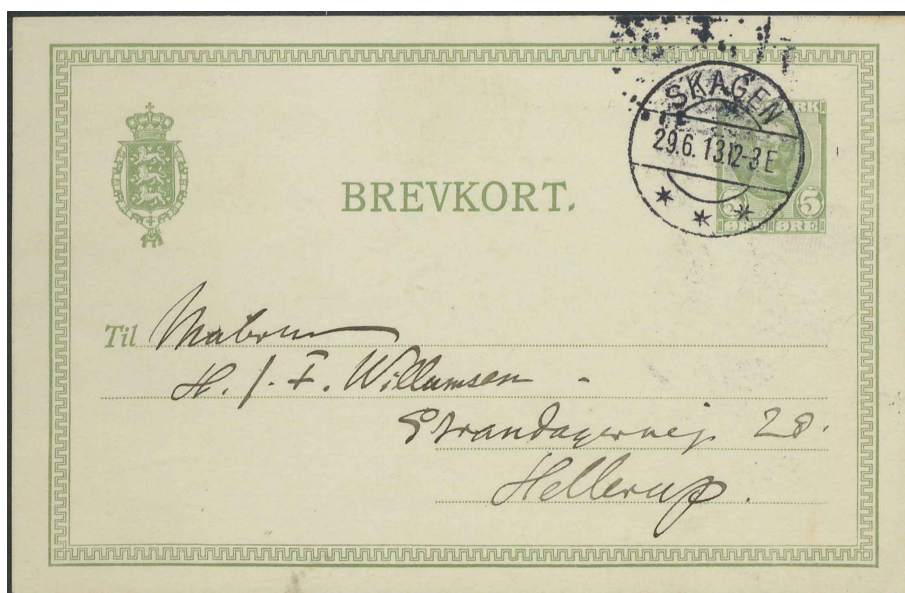 SKAGEN
29.6.13.12-3E
BREVKORT.
5 5
ØRE ØRE
Til Maleren
H. J. F. Willumsen -
Strandagervej 28.
Hellerup.